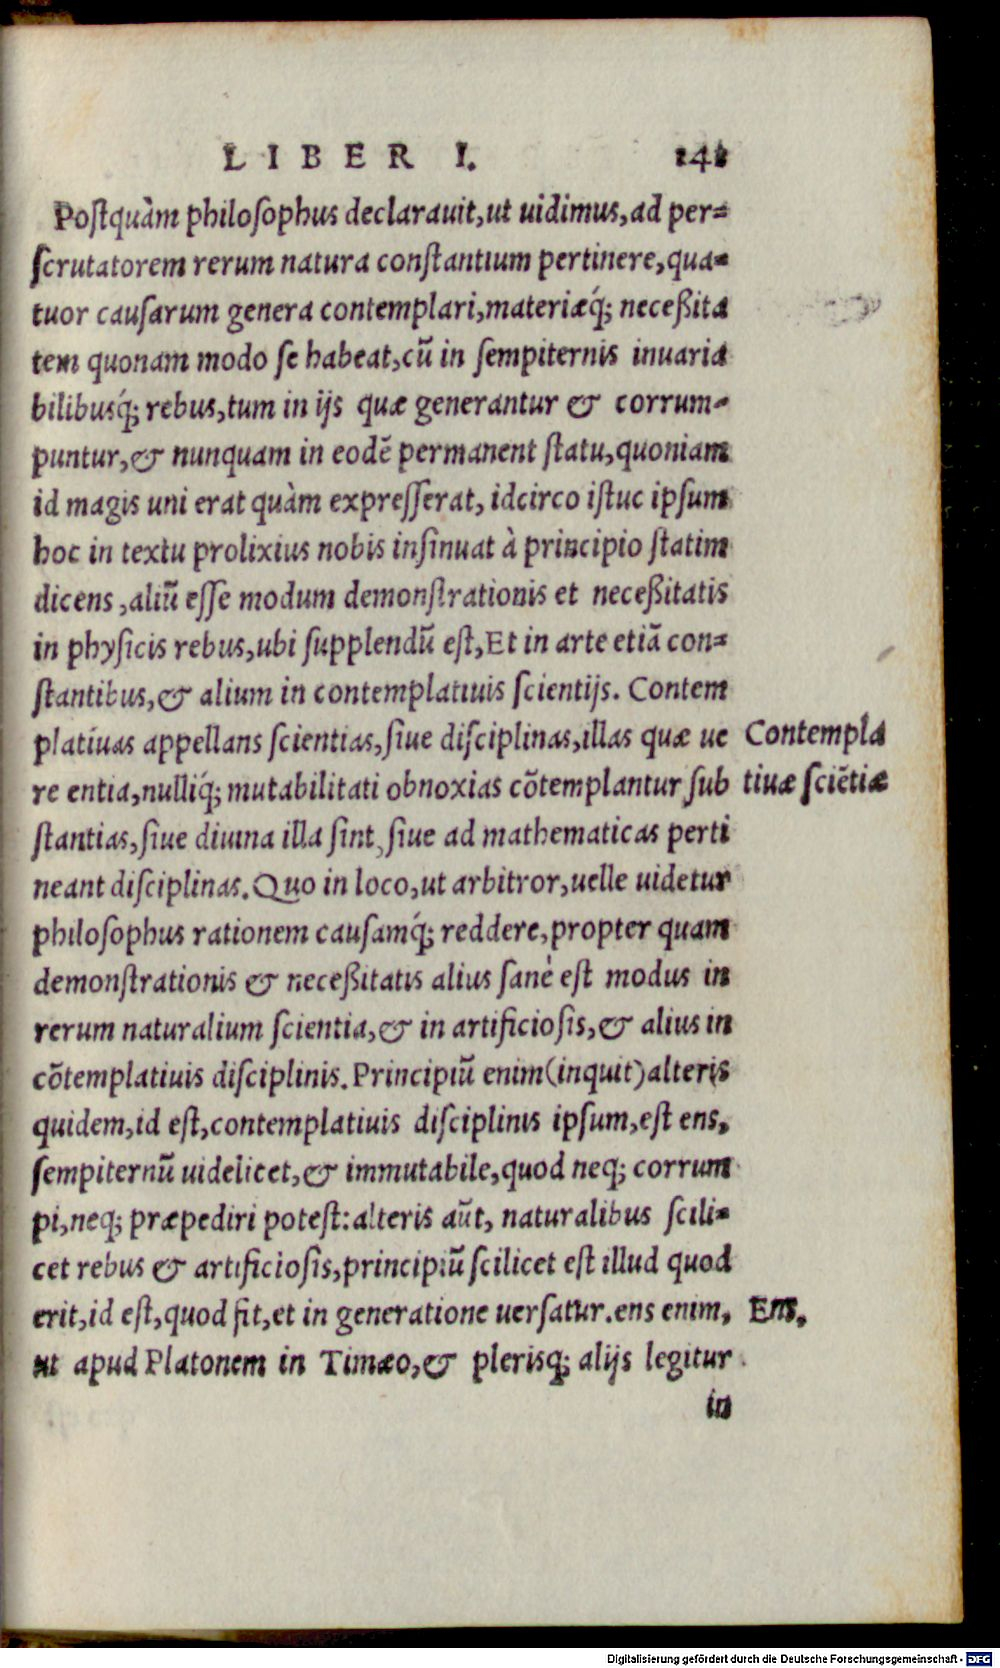 LIBER I. 141
Postquàm philosophus declarauit, ut uidimus, ad per=
scrutatorem rerum natura constantium pertinere, qua=
tuor causarum genera contemplari, materiæq́; neceßita
tem quonam modo se habeat, cũ in sempiternis inuaria
bilibusq́; rebus, tum in ijs quæ generantur & corrum=
puntur, & nunquam in eodẽ permanent statu, quoniam
id magis uni erat quàm expresserat, idcirco istuc ipsum
hoc in textu prolixius nobis insinuat à principio statim
dicens, aliũ esse modum demonstrationis et neceßitatis
in physicis rebus, ubi supplendũ est, Et in arte etiã con=
stantibus, & alium in contemplatiuis scientijs. Contem
platiuas appellans scientias, siue disciplinas, illas quæ ue
re entia, nulliq́; mutabilitati obnoxias cõtemplantur sub
stantias, siue diuina illa sint, siue ad mathematicas perti
neant disciplinas. Quo in loco, ut arbitror, uelle uidetur
philosophus rationem causamq́; reddere, propter quam
demonstrationis & neceßitatis alius sanè est modus in
rerum naturalium scientia, & in artificiosis, & alius in
cõtemplatiuis disciplinis. Principiũ enim (inquit) alteris
quidem, id est, contemplatiuis disciplinis ipsum, est ens,
sempiternũ uidelicet, & immutabile, quod neq; corrum
pi, neq; præpediri potest: alteris aũt, naturalibus scili=
cet rebus & artificiosis, principiũ scilicet est illud quod
erit, id est, quod fit, et in generatione uersatur. ens enim,
ut apud Platonem in Timæo, & plerisq; alijs legitur
in
Contempla
tiuæ sciẽtiæ
Ens.
Digitalisierung gefördert durch die Deutsche Forschungsgemeinschaft - DFG